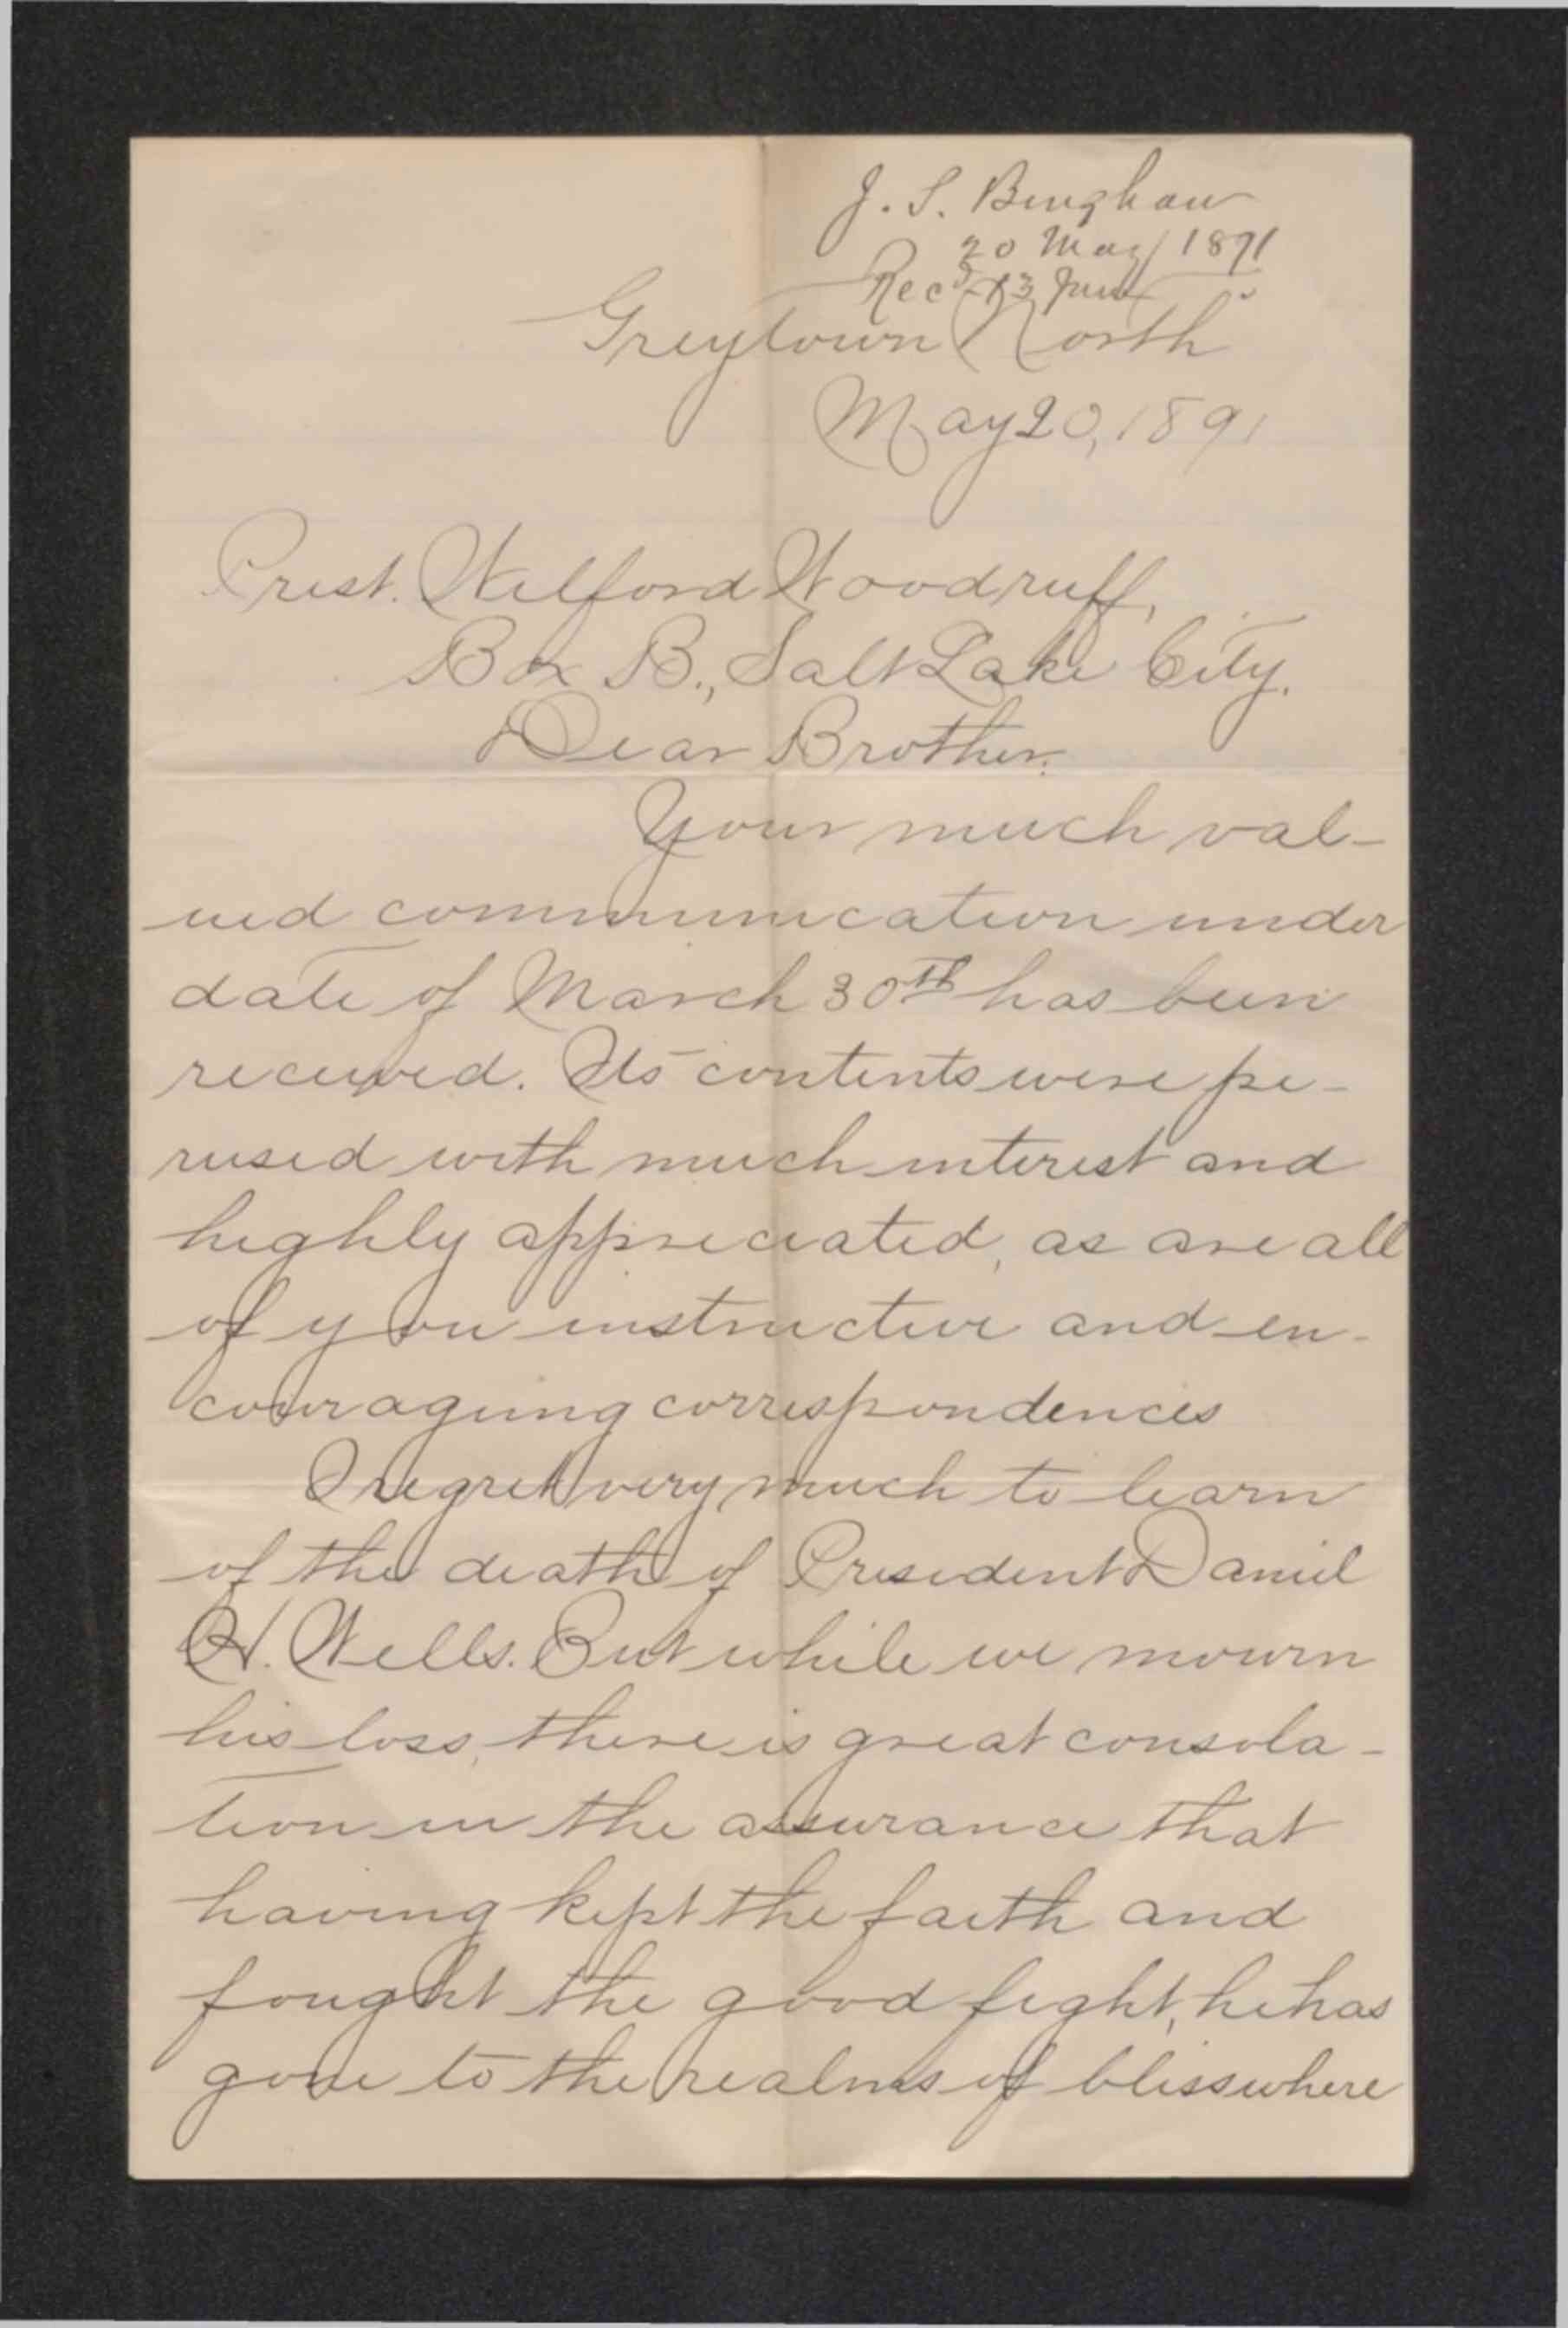 J. S. Bingham
20 May 1891
Recd 13 June
Greytown North
May 20, 1891
Prest. Wilford Woodruff,
Box B., Salt Lake City.
Dear Brother:
Your much val-
ued communication under
date of March 30th has been
received. Its contents were pe-
rused with much interest and
highly appreciated, as are all
of you instructive and en-
couraging correspondences
I regret very much to learn
of the death of President Daniel
H. Wells. But while we mourn
his loss, there is great consola-
tion in the assurance that
having kept the faith and
fought the good fight, he has
gone to the realms of bliss where